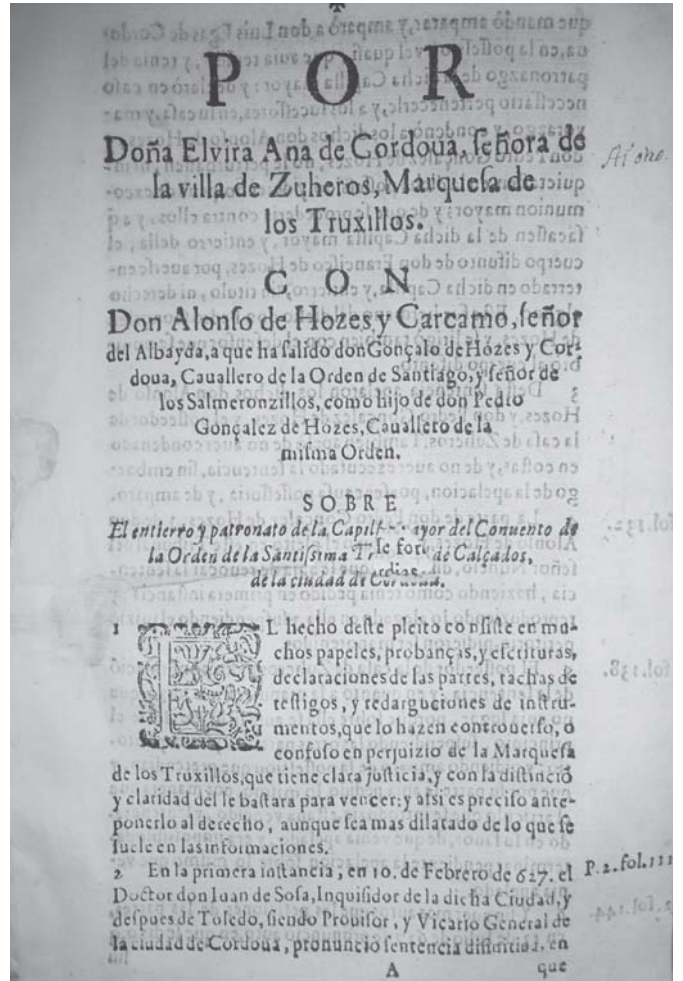 ✠
P O R
Doña Elvira Ana de Cordoua, ſeñora de
la villa de Zuheros, Marqueſa de
los Truxillos.
C O N
Don Alonſo de Hozes y Carcamo, ſeñor
del Albayda, a que ha ſalido don Gonçalo de Hozes y Cor-
doua, Cauallero de la Orden de Santiago, y ſeñor de
los Salmeronzillos, como hijo de don Pedro
Gonçalez de Hozes, Cauallero de la
miſma Orden.
S O B R E
El entierro y patronato de la Capill ayor del Conuento de
la Orden de la Santiſsima de Calçados,
de la ciudad de Cordoua.
1 EL hecho deſte pleito conſiſte en mu-
chos papeles, probanças, y eſcrituras,
declaraciones de las partes, tachas de
teſtigos, y redarguciones de inſtru-
mentos, que lo hazen controuerſo, o
confuſo en perjuizio de la Marqueſa
de los Truxillos, que tiene clara juſticia, y con la diſtinció
y claridad del le baſtara para vencer: y aſsi es preciſo ante-
ponerlo al derecho, aunque ſea mas dilatado de lo que ſe
ſuele en las informaciones.
2 En la primera inſtancia, en 10. de Febrero de 627. el
P.2.fol.111
Doctor don Iuan de Soſa, Inquiſidor de la dicha Ciudad, y
deſpues de Toledo, ſiendo Prouiſor, y Vicario General de
la ciudad de Cordoua, pronunciò ſentencia difinitiua, en
A que